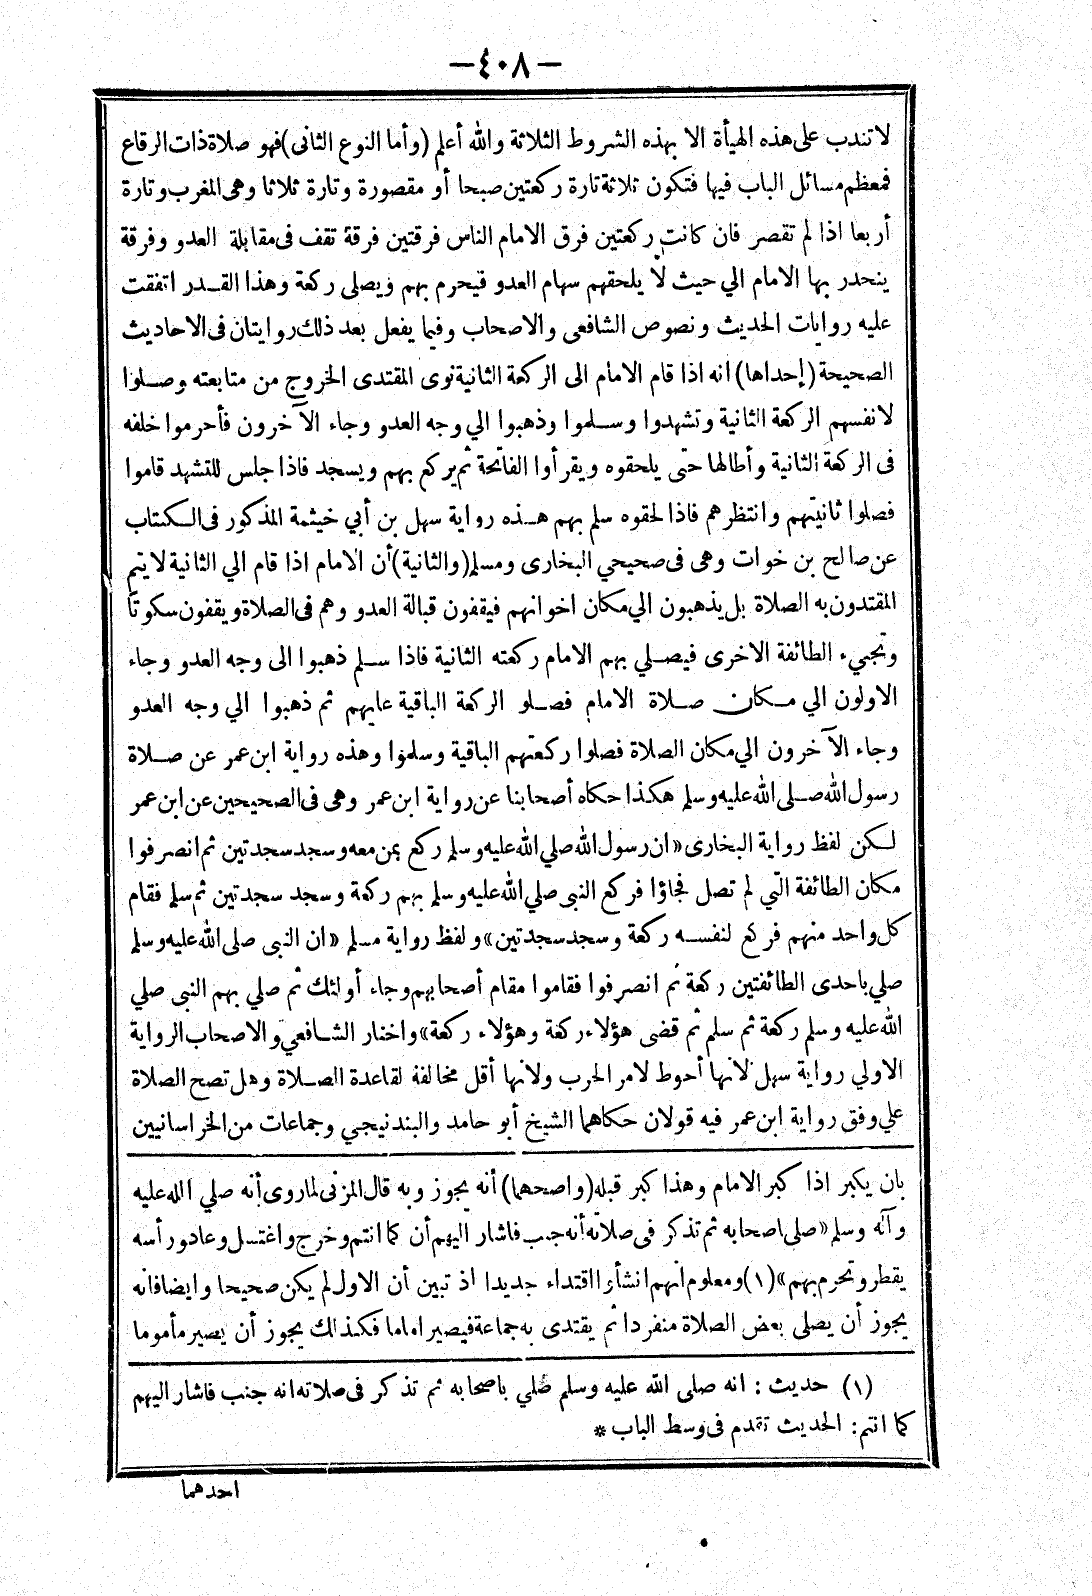 —٤٠٨—
لا تندب على هذه الهيأة الا بهذه الشروط الثلاثة والله أعلم (وأما النوع الثانى) فهو صلاة ذات الرقاع
فمعظم مسائل الباب فيها فتكون ثلاثة تارة ركعتين صبحا أو مقصورة وتارة ثلاثا وهى المغرب وتارة
أربعا اذا لم تقصر فان كانت ركعتين فرق الامام الناس فرقتين فرقة تقف فى مقابلة العدو وفرقة
ينحدر بها الامام الي حيث لا يلحقهم سهام العدو فيحرم بهم ويصلى ركعة وهذا القدر اتفقت
عليه روايات الحديث ونصوص الشافعى والاصحاب وفيما يفعل بعد ذلك روايتان فى الاحاديث
الصحيحة (إحداها) انه اذا قام الامام الى الركعة الثانية نوى المقتدى الخروج من متابعته وصلوا
لانفسهم الركعة الثانية وتشهدوا وسلموا وذهبوا الي وجه العدو وجاء الآخرون فأحرموا خلفه
فى الركعة الثانية وأطالها حتى يلحقوه ويقرأوا الفاتحة ثم يركع بهم ويسجد فاذا جلس للتشهد قاموا
فصلوا ثانيتهم وانتظرهم فاذا لحقوه سلم بهم هذه رواية سهل بن أبي خيثمة المذكور فى الكتاب
عن صالح بن خوات وهى فى صحيحي البخارى ومسلم (والثانية) أن الامام اذا قام الي الثانية لا يتم
المقتدون به الصلاة بل يذهبون الي مكان اخوانهم فيقفون قبالة العدو وهم فى الصلاة ويقفون سكوتا
وتجىء الطائفة الاخرى فيصلي بهم الامام ركعته الثانية فاذا سلم ذهبوا الى وجه العدو وجاء
الاولون الي مكان صلاة الامام فصلو الركعة الباقية عليهم ثم ذهبوا الي وجه العدو
وجاء الآخرون الي مكان الصلاة فصلوا ركعتهم الباقية وسلموا وهذه رواية ابن عمر عن صلاة
رسول الله صلى الله عليه وسلم هكذا حكاه أصحابنا عن رواية ابن عمر وهى فى الصحيحين عن ابن عمر
لكن لفظ رواية البخارى «ان رسول الله صلي الله عليه وسلم ركع بمن معه وسجد سجدتين ثم انصرفوا
مكان الطائفة التي لم تصل فجاؤا فركع النبى صلي الله عليه وسلم بهم ركعة وسجد سجدتين ثم سلم فقام
كل واحد منهم فركع لنفسه ركعة وسجد سجدتين» ولفظ رواية مسلم «ان النبى صلى الله عليه وسلم
صلي باحدى الطائفتين ركعة ثم انصرفوا فقاموا مقام أصحابهم وجاء أولئك ثم صلي بهم النبى صلي
الله عليه وسلم ركعة ثم سلم ثم قضى هؤلاء ركعة وهؤلاء ركعة» واختار الشافعي والاصحاب الرواية
الاولي رواية سهل لانها أحوط لامر الحرب ولانها أقل مخالفة لقاعدة الصلاة وهل تصح الصلاة
علي وفق رواية ابن عمر فيه قولان حكاهما الشيخ أبو حامد والبندنيجي وجماعات من الخراسانيين
بان يكبر اذا كبر الامام وهذا كبر قبله (واصحهما) أنه يجوز وبه قال المزنى لما روى أنه صلي الله عليه
وآله وسلم «صلى اصحابه ثم تذكر فى صلاته أنه جنب فاشار اليهم أن كما انتم وخرج واغتسل وعاد ورأسه
يقطر وتحرم بهم» (١) ومعلوم انهم انشأوا اقتداء جديدا اذ تبين أن الاول لم يكن صحيحا وايضا فانه
يجوز أن يصلى بعض الصلاة منفردا ثم يقتدى به جماعة فيصير اماما فكذلك يجوز أن يصير مأموما
(١) حديث : انه صلى الله عليه وسلم صلي باصحابه ثم تذكر فى صلاته انه جنب فاشار اليهم
كما انتم : الحديث تقدم فى وسط الباب *
احدهما